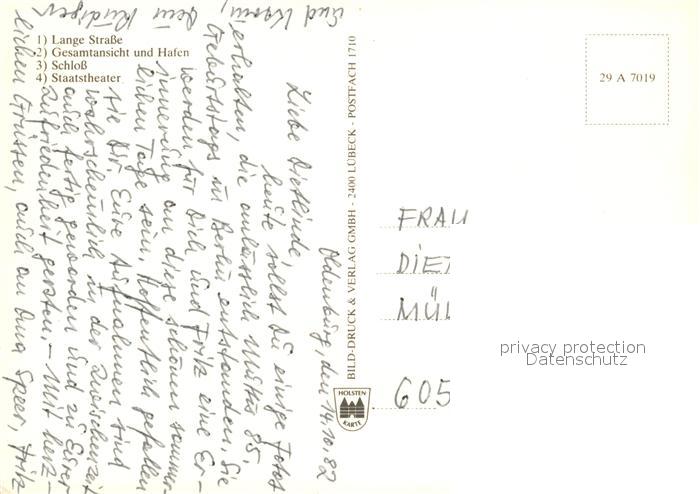 1) Lange Straße
2) Gesamtansicht und Hafen
3) Schloß
4) Staatstheater
Oldenburg, den 14.10.82
Liebe Dietlinde,
heute sollst Du einige Fotos
erhalten, die anlässlich Muttis 85.
Geburtstags in Berlin entstanden. Sie
werden für Dich und Fritz eine Er-
innerung an diese schönen sommer-
lichen Tage sein. Hoffentlich gefallen
sie Dir. Eure Aufnahmen sind
wahrscheinlich in der Zwischenzeit
auch fertig geworden und zu Eurer
Zufriedenheit geraten. - Mit herz-
lichen Grüssen, auch an Oma Speer, Fritz
und Karin,
Dein Rüdiger
BILD-DRUCK & VERLAG GMBH - 2400 LÜBECK - POSTFACH 1710
HOLSTEN
KARTE
29 A 7019
FRAU
DIET
MÜL
605
privacy protection
Datenschutz